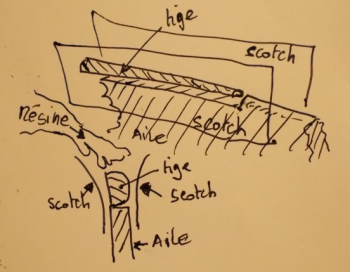 tige
scotch
Résine
Aile
scotch
tige
scotch
scotch
Aile